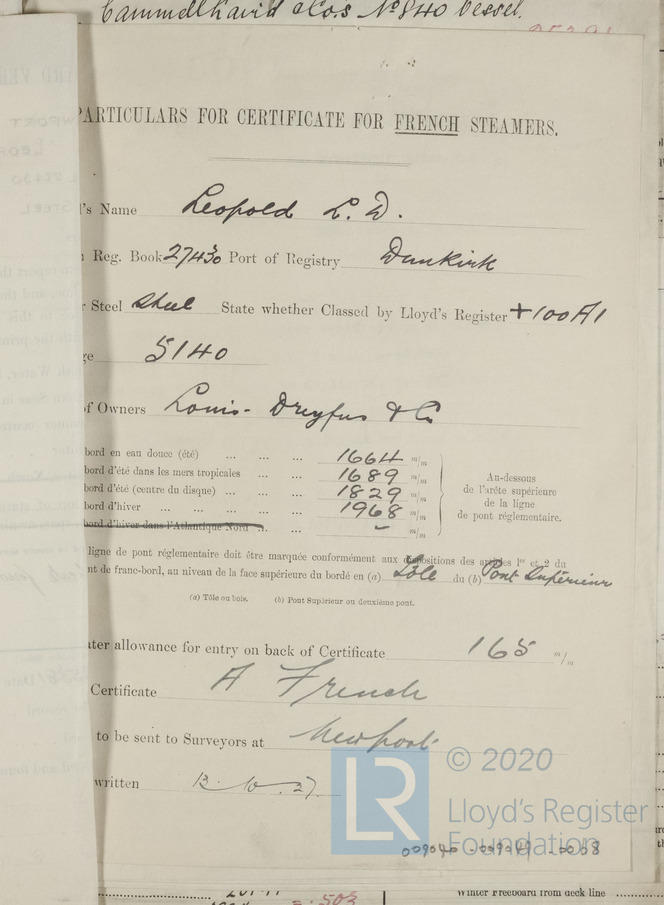 Cammell Laird & Co's No 840 vessel.
PARTICULARS FOR CERTIFICATE FOR FRENCH STEAMERS.
's Name Leopold L. D.
Reg. Book 27430 Port of Registry Dunkirk
Steel Steel State whether Classed by Lloyd's Register +100 A1
ge 5140
of Owners Louis-Dreyfus & Co
bord en eau douce (été) ... ... ... 1664 m/m
bord d'été dans les mers tropicales ... ... 1689 m/m
bord d'été (centre du disque) ... ... ... 1829 m/m
bord d'hiver ... ... ... ... 1968 m/m
bord d'hiver dans l'Atlantique Nord ... ... - m/m
Au-dessous
de l'arête supérieure
de la ligne
de pont réglementaire.
ligne de pont réglementaire doit être marquée conformément aux dispositions des articles 1er et 2 du
nt de franc-bord, au niveau de la face supérieure du bordé en (a) Tôle du (b) Pont Supérieur
(a) Tôle ou bois. (b) Pont Supérieur ou deuxième pont.
ter allowance for entry on back of Certificate 165 m/m
Certificate A French
to be sent to Surveyors at Newport
written
© 2020
LR
Lloyd's Register
Foundation
009040-009049-0038
Winter Freeboard from deck line